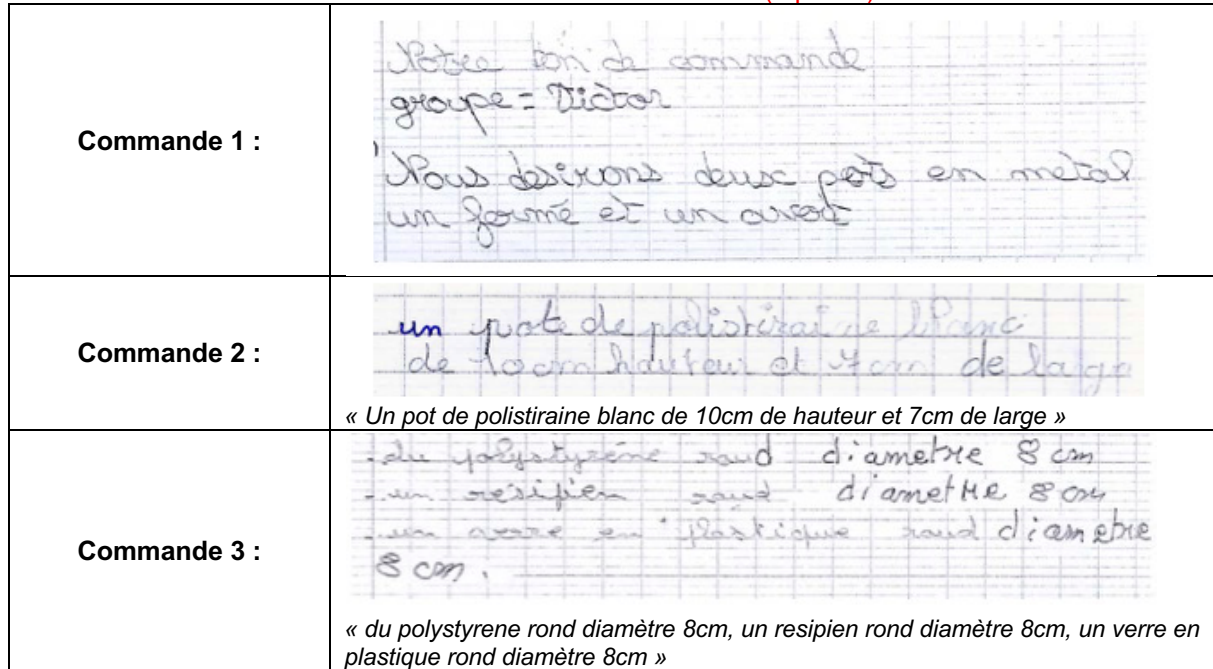 Commande 1 :
Notre bon de commande
groupe = Victor
Nous desirons deux pots en metal
un formé et un
Commande 2 :
un pote de polistiraine blanc
de 10 cm hauteur et 7 cm de large
« Un pot de polistiraine blanc de 10cm de hauteur et 7cm de large »
Commande 3 :
- du polystyrène rond diametre 8 cm
- un resipien rond diametre 8 cm
- un verre en plastique rond diametre
8 cm.
« du polystyrene rond diamètre 8cm, un resipien rond diamètre 8cm, un verre en
plastique rond diamètre 8cm »